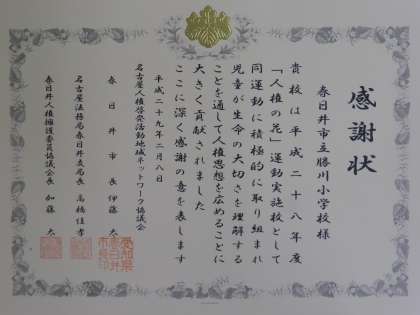 感謝状
春日井市立勝川小学校様
貴校は平成二十八年度
「人権の花」運動実施校として
同運動に積極的に取り組まれ
児童が生命の大切さを理解する
ことを通して人権思想を広めることに
大きく貢献されました
ここに深く感謝の意を表します
平成二十九年二月八日
名古屋人権啓発活動地域ネットワーク協議会
春日井市長 伊藤 太
名古屋法務局春日井支局長 高橋佳孝
春日井人権擁護委員協議会長 加藤
愛知県
春日井
市長印